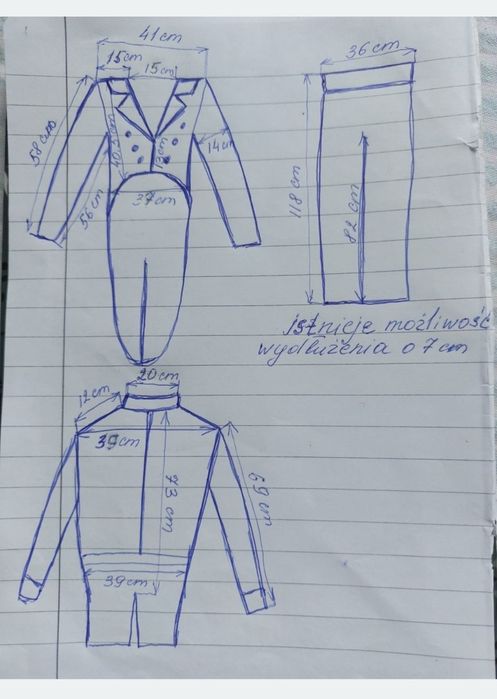 41 cm
15 cm
15 cm
36 cm
58 cm
40,5 cm
13 cm
14 cm
56 cm
37 cm
118 cm
82 cm
istnieje możliwość
wydłużenia o 7 cm
20 cm
12 cm
39 cm
73 cm
69 cm
39 cm